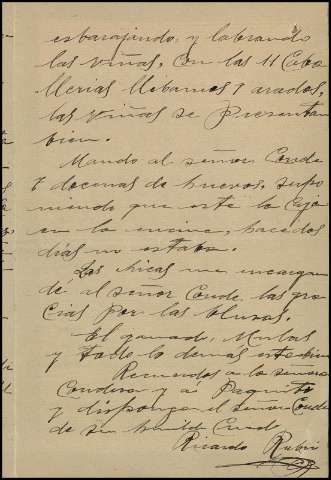 esbarajando, y labrando
las viñas, con las 11 Caba
llerias llibamos 7 arados,
las viñas se presentan
bien.
Mando al señor Conde
7 docenas de huevos, supo
niendo que este la Caja
en la encina, hace dos
días no estaba.
Las chicas me encargan
dé al señor Conde las gra
cias por las blusas.
El ganado, Mulas
y todo lo demas este bien
Recuerdos a la señora
Condesa y a Paquito
y disponga el señor Conde
de su humilde Criado
Ricardo Rubio